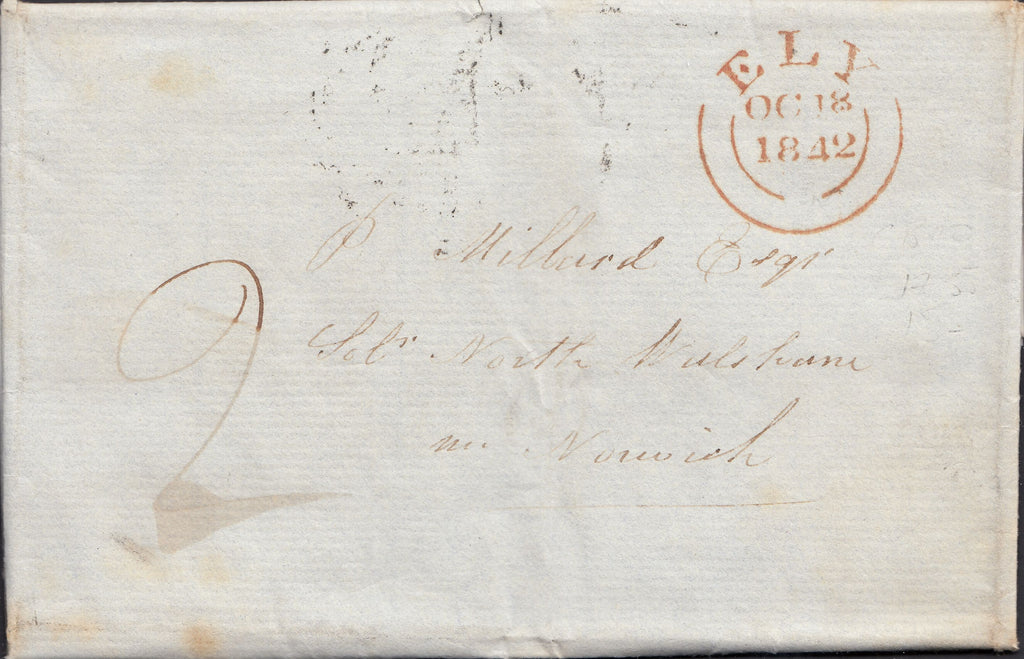 ELY
OC 18
1842
P. Millard Esqr
Solr North Walsham
nr Norwich
2